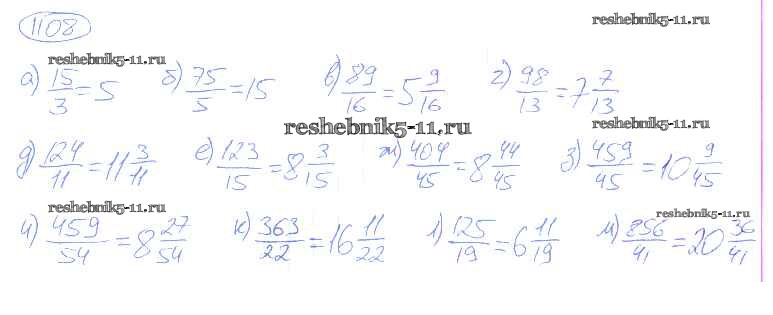 1108
reshebnik5-11.ru
reshebnik5-11.ru
а) 15/3 = 5 б) 75/5 = 15 в) 89/16 = 5 9/16 г) 98/13 = 7 7/13
reshebnik5-11.ru
reshebnik5-11.ru
д) 124/11 = 11 3/11 е) 123/15 = 8 3/15 ж) 404/45 = 8 44/45 з) 459/45 = 10 9/45
reshebnik5-11.ru
reshebnik5-11.ru
и) 459/54 = 8 27/54 к) 363/22 = 16 11/22 л) 125/19 = 6 11/19 м) 856/41 = 20 36/41